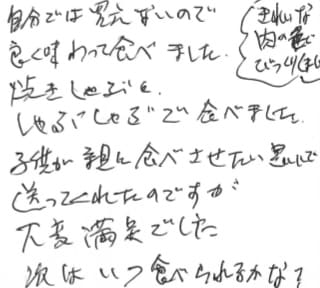 自分では買えないので
良く味わって食べました。
焼きしゃぶと
しゃぶしゃぶで食べました。
子供が親に食べさせたい思いで
送ってくれたのですが
大変満足でした
次はいつ食べられるかな?
きれいな
肉の
びっくりしま